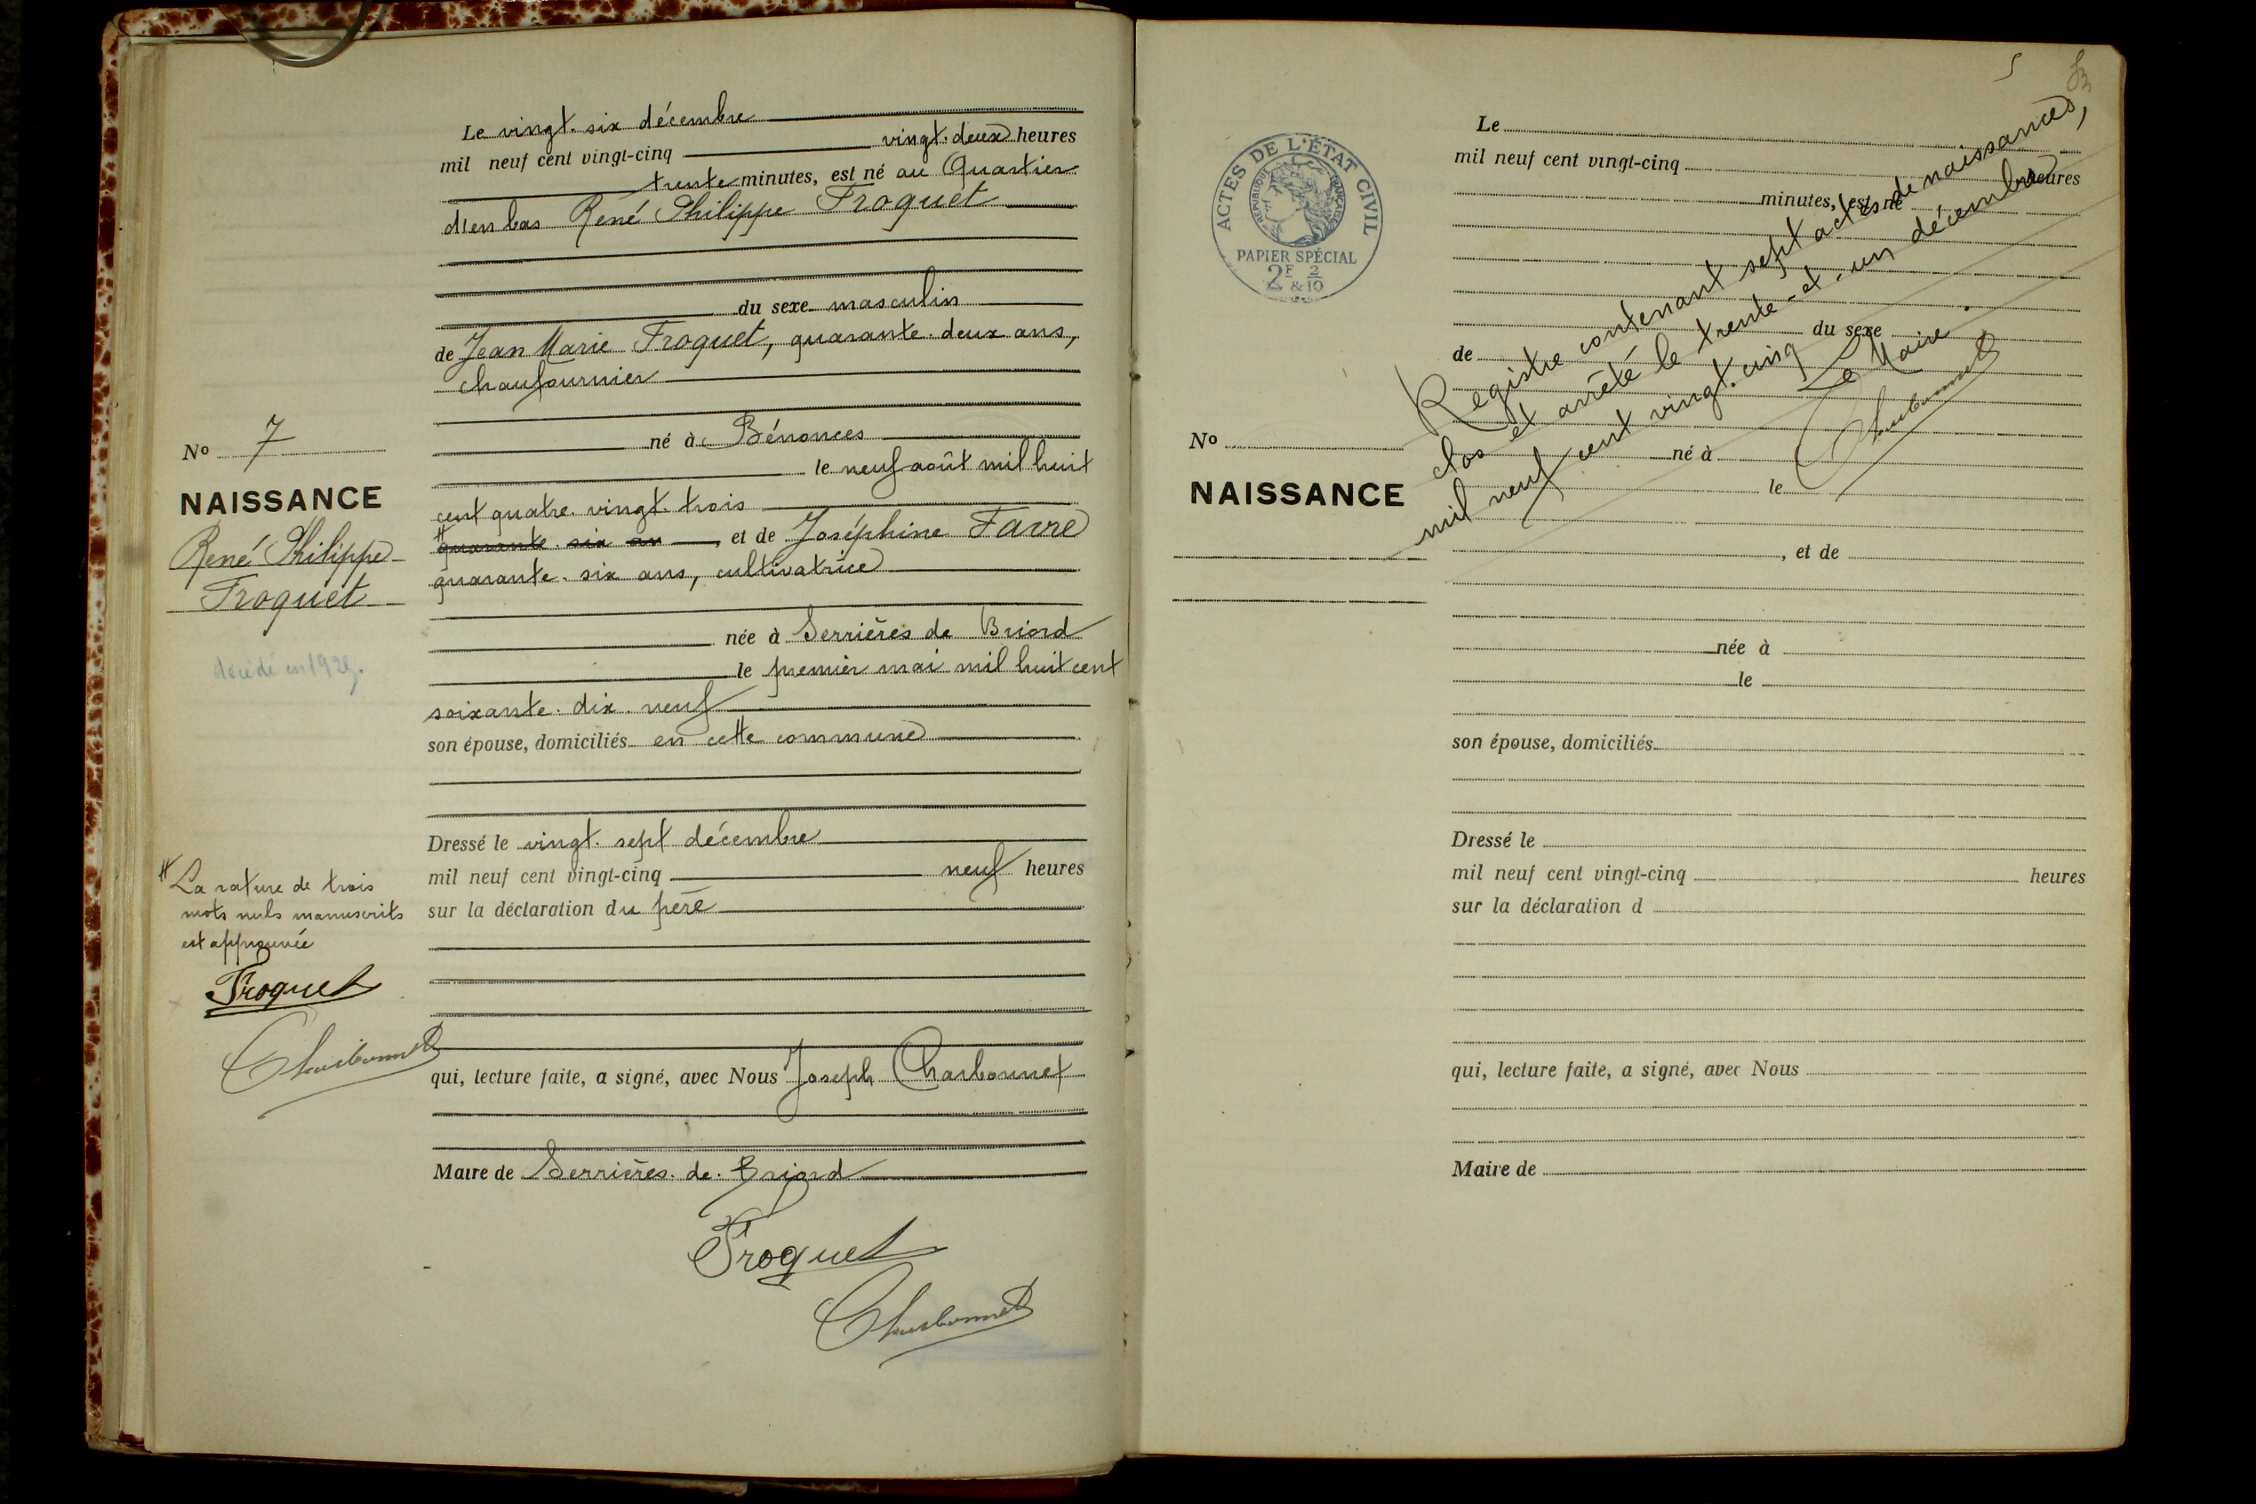 Le vingt-six décembre
mil neuf cent vingt-cinq vingt-deux heures
trente minutes, est né au Quartier
d'en bas René Philippe Froquet
du sexe masculin
de Jean Marie Froquet, quarante-deux ans,
chaufournier
né à Bénonces
le neuf août mil huit
cent quatre-vingt-trois
# quarante-six an, et de Joséphine Favre
quarante-six ans, cultivatrice
née à Serrières de Briord
le premier mai mil huit cent
soixante-dix-neuf
son épouse, domiciliés en cette commune
Dressé le vingt-sept décembre
mil neuf cent vingt-cinq neuf heures
sur la déclaration du père
qui, lecture faite, a signé, avec Nous Joseph Charbonnet
Maire de Serrières-de-Briord
Froquet
Charbonnet
No 7
NAISSANCE
René Philippe
Froquet
décédé en
# La rature de trois
mots nuls manuscrits
est approuvée
Froquet
Charbonnet
5
ACTES DE L'ÉTAT CIVIL
RÉPUBLIQUE FRANÇAISE
PAPIER SPÉCIAL
2F & 2/10
No
NAISSANCE
Le
mil neuf cent vingt-cinq
heures
minutes, est né
du sexe
de
né à
le
, et de
née à
le
son épouse, domiciliés
Dressé le
mil neuf cent vingt-cinq heures
sur la déclaration d
qui, lecture faite, a signé, avec Nous
Maire de
Registre contenant sept actes de naissances,
clos et arrêté le trente-et-un décembre
mil neuf cent vingt-cinq
Le Maire.
Charbonnet